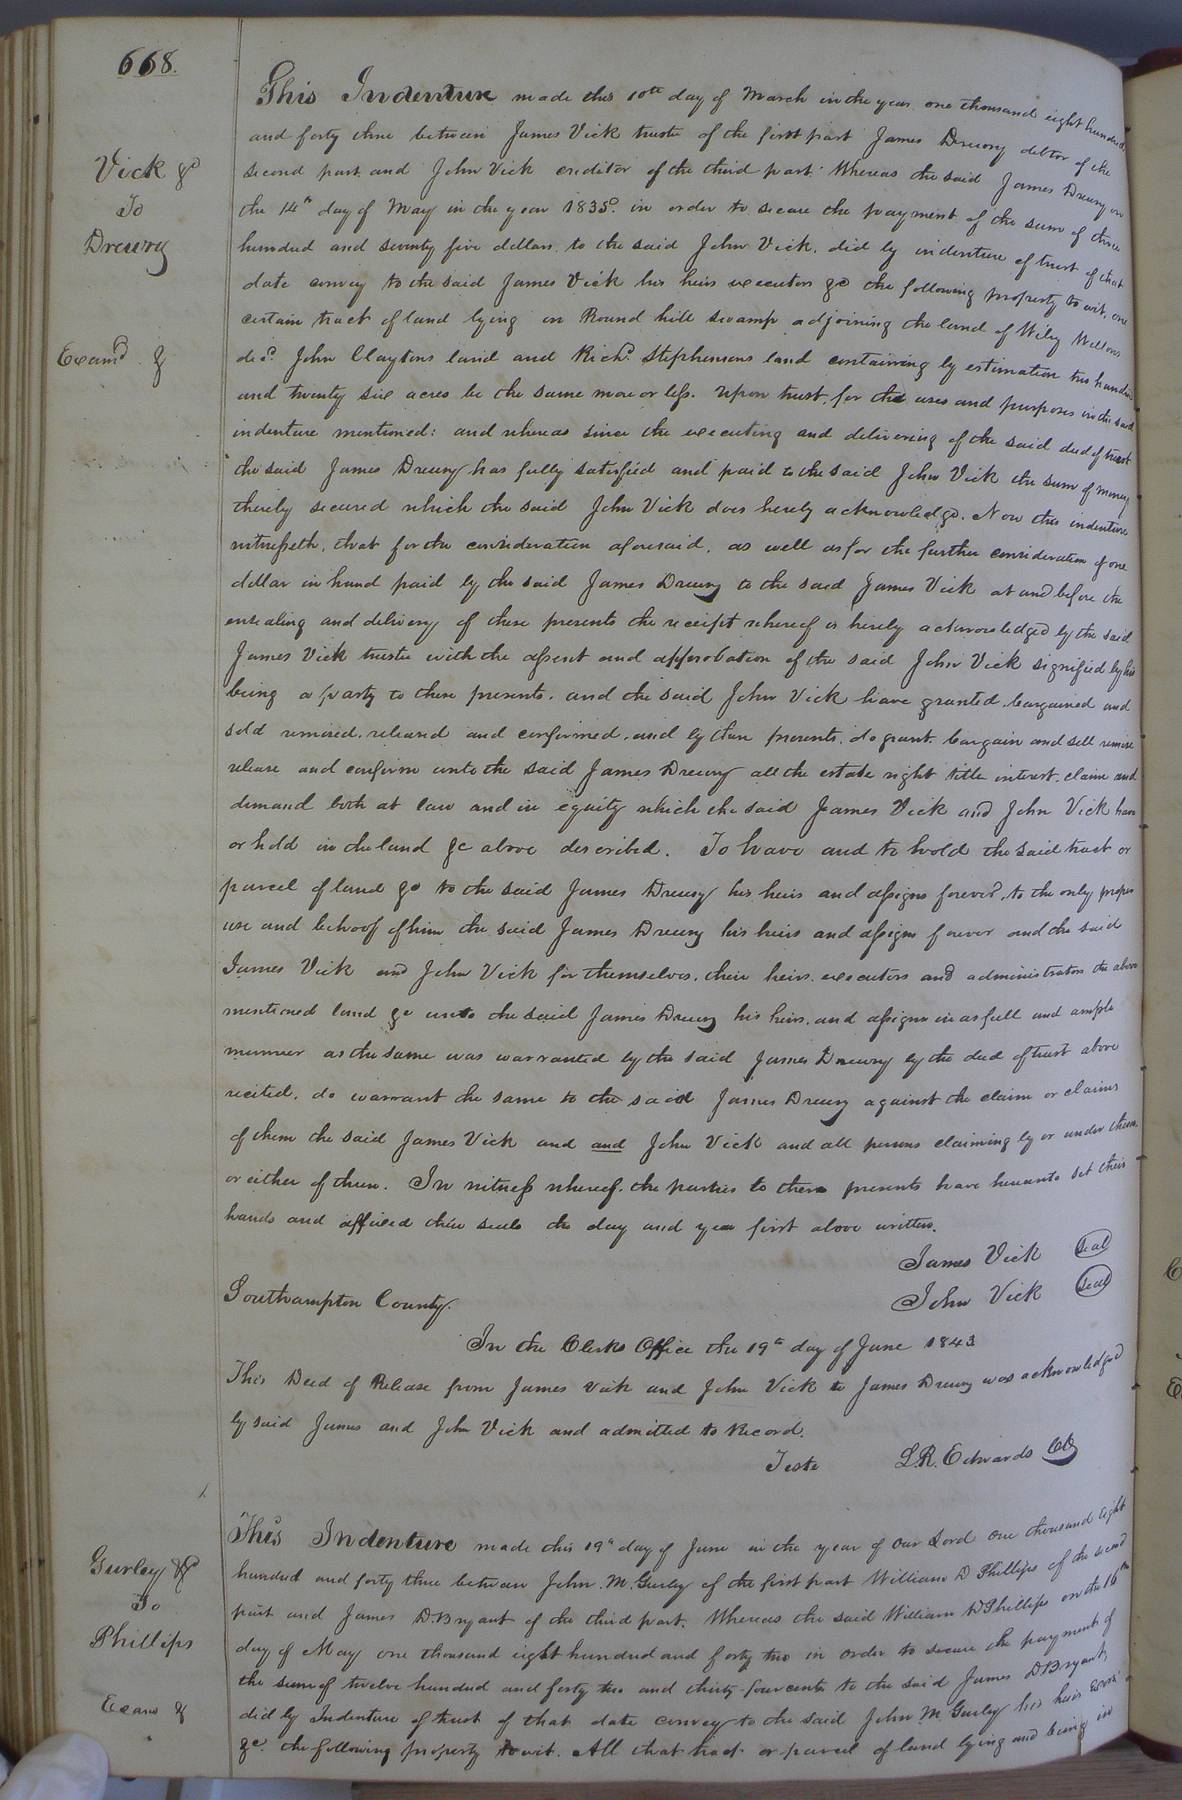 668.
Vick &c
To
Drewry
Examd. &
This Indenture made this 10th day of March in the year one thousand eight hundred
and forty three between James Vick trustee of the first part James Drewry debtor of the
second part and John Vick creditor of the third part. Whereas the said James Drewry on
the 14th day of May in the year 1835. in order to secure the payment of the sum of three
hundred and seventy five dollars to the said John Vick, did by indenture of trust of that
date convey to the said James Vick his heirs executors &c the following property to wit, one
certain tract of land lying in Round hill swamp adjoining the land of Wiley
decd. John Claytons land and Richd. Stephensons land containing by estimation two hundred
and twenty six acres be the same more or less. Upon trust, for the uses and purposes in the said
indenture mentioned: and whereas since the executing and delivering of the said deed of trust
the said James Drewry has fully satisfied and paid to the said John Vick the sum of money
thereby secured which the said John Vick does hereby acknowledge. Now this indenture
witnesseth, that for the consideration aforesaid, as well as for the further consideration of one
dollar in hand paid by the said James Drewry to the said James Vick at and before the
ensealing and delivery of these presents the receipt whereof is hereby acknowledged by the said
James Vick trustee with the assent and approbation of the said John Vick signified by his
being a party to these presents. and the said John Vick have granted, bargained and
sold remised, released and confirmed, and by these presents, do grant, bargain and sell remise
release and confirm unto the said James Drewry all the estate right title interest, claim and
demand both at law and in equity which the said James Vick and John Vick have
or hold in the land &c above described. To have and to hold the said tract or
parcel of land &c to the said James Drewry his heirs and assigns forever, to the only proper
use and behoof of him the said James Drewry his heirs and assigns forever and the said
James Vick and John Vick for themselves, their heirs, executors and administrators the above
mentioned land &c unto the said James Drewry his heirs, and assigns in as full and ample
manner as the same was warranted by the said James Drewry by the deed of trust above
recited, do warrant the same to the said James Drewry against the claim or claims
of them the said James Vick and and John Vick and all persons claiming by or under them
or either of them. In witness whereof, the parties to these presents have hereunto set their
hands and affixed their seals the day and year first above written.
James Vick Seal
John Vick Seal
Southampton County.
In the Clerks Office the 19th day of June 1843
This Deed of Release from James Vick and John Vick to James Drewry was acknowledged
by said James and John Vick and admitted to Record.
Teste L.R. Edwards Clk
Gurley &c
To
Phillips
Exam &
This Indenture made this 19th day of June in the year of our Lord one thousand eight
hundred and forty three between John M. Gurley of the first part William D Phillips of the second
part and James D. Bryant of the third part. Whereas the said William D Phillips on the 16th
day of May one thousand eight hundred and forty two in order to secure the payment of
the sum of twelve hundred and forty two and thirty four cents to the said James D Bryant,
did by Indenture of trust of that date convey to the said John M. Gurley his heirs Exors
&c. the following property to wit. All that tract or parcel of land lying and being in